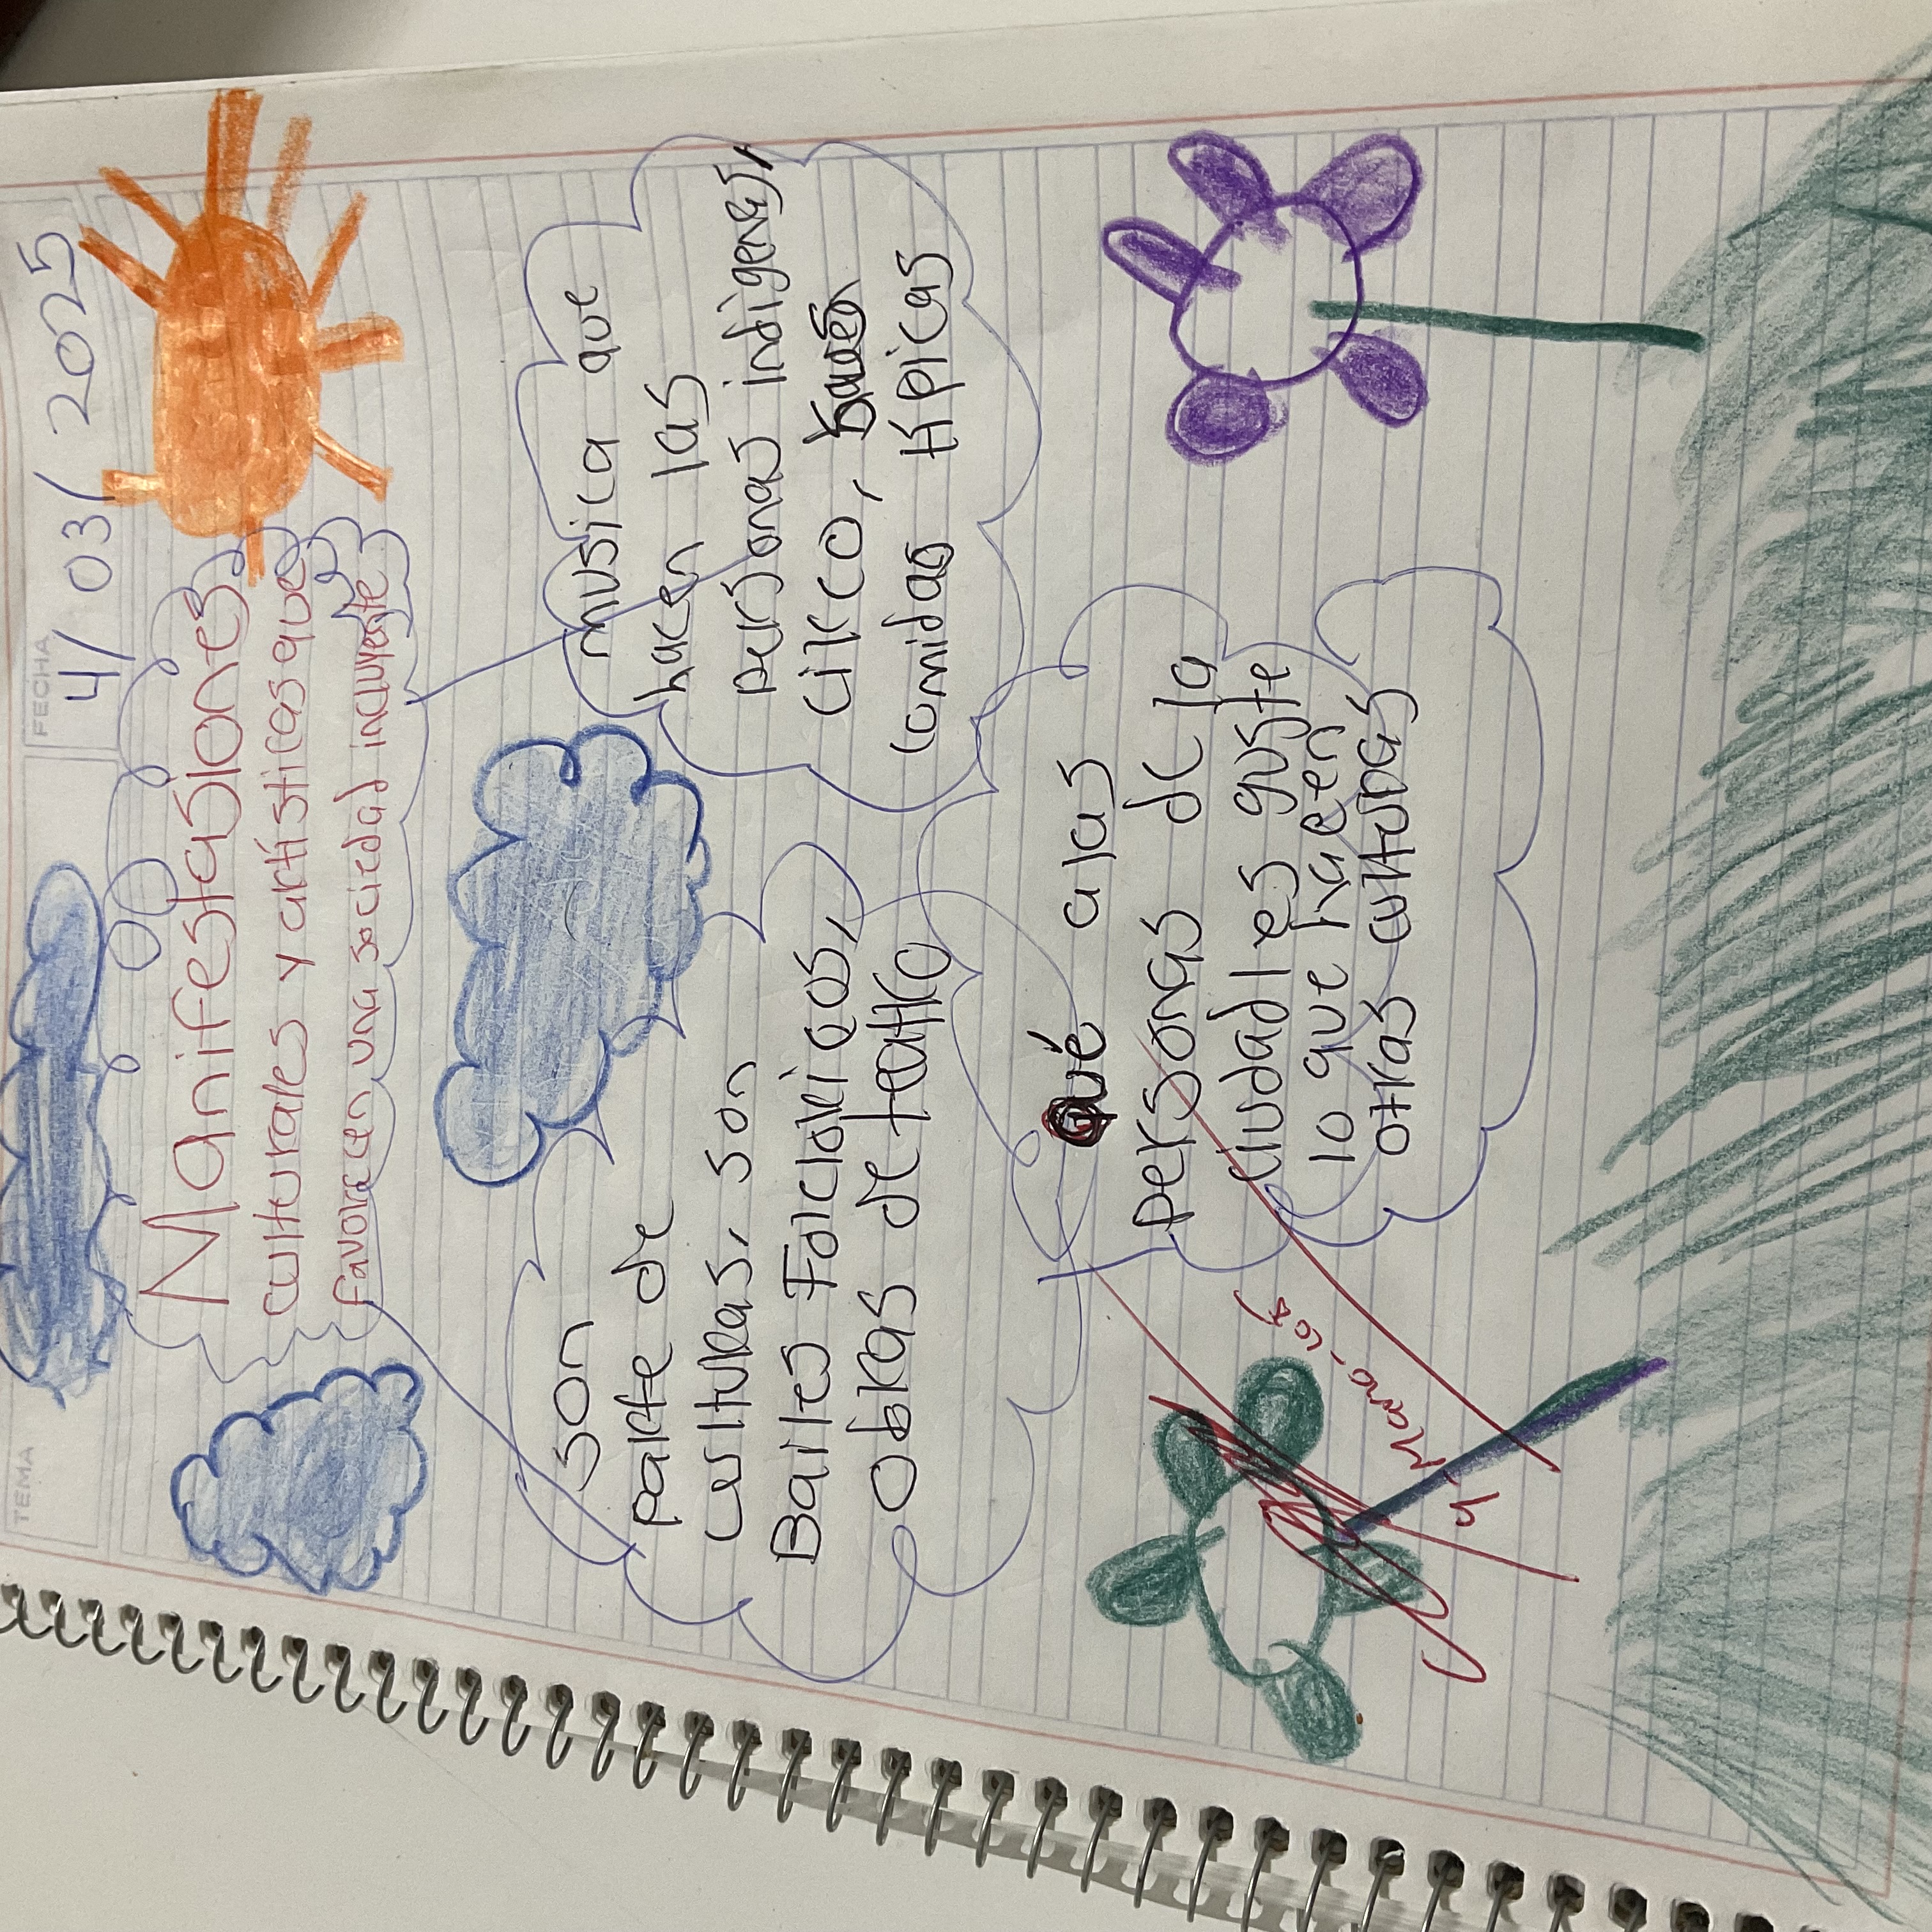 TEMA
FECHA
4/ 03/ 2025
Manifestasiones
culturales y artísticas que
favoracen una sociedad incluyente
son
parte de
culturas, son
Bailes Folcloricos,
obras de teatro
musica que
hacen las
personas indigenas,
circo,
comidas típicas
qué a las
personas de la
ciudad les guste
lo que hacen
otras culturas
4-Marzo-